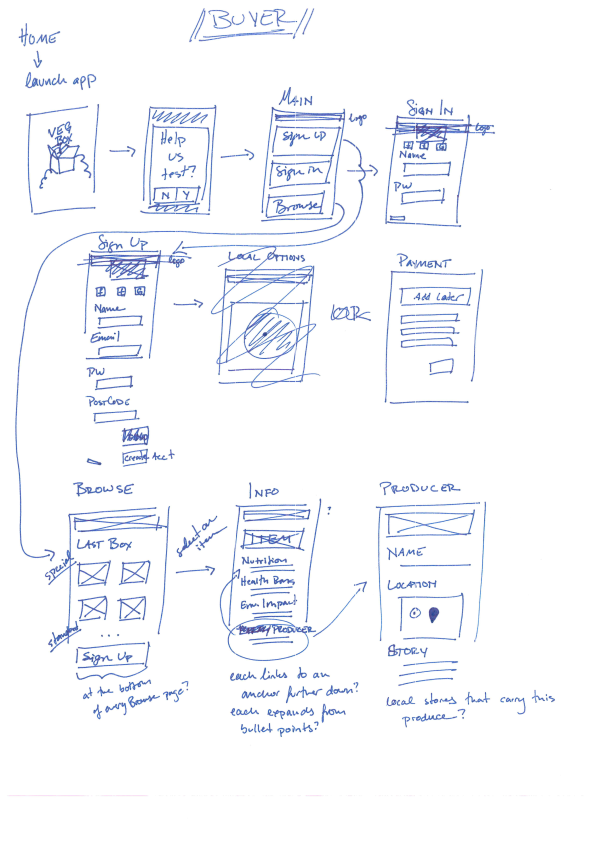 BUYER
HOME
launch app
VEG
BOX
Help
us
test?
N Y
MAIN
logo
Sign up
Sign in
Browse
SIGN IN
logo
Name
PW
Sign Up
logo
Name
Email
PW
PostCode
Create Acct
LOCAL OPTIONS
OR
PAYMENT
Add Later
BROWSE
LAST BOX
special
standard
...
Sign Up
at the bottom
of every Browse page?
select an
item
INFO
?
ITEM
Nutrition
Health Bens
Env Impact
PRODUCER
each links to an
anchor further down?
each expands from
bullet points?
PRODUCER
NAME
LOCATION
STORY
local stores that carry this
produce?